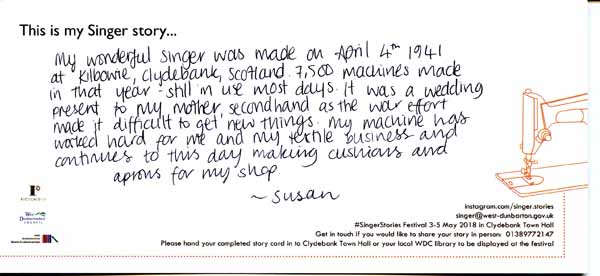 This is my Singer story...
My wonderful Singer was made on April 4th 1941
at Kilbowie, Clydebank, Scotland. 7,500 machines made
in that year - still in use most days. It was a wedding
present to my mother, secondhand as the war effort
made it difficult to get new things. My machine has
worked hard for me and my textile business and
continues to this day making cushions and
aprons for my shop.
~ Susan
instagram.com/singer.stories
singer@west-dunbarton.gov.uk
#SingerStories Festival 3-5 May 2018 in Clydebank Town Hall
Get in touch if you would like to share your story in person: 01389772147
Please hand your completed story card in to Clydebank Town Hall or your local WDC library to be displayed at the festival
West
Dunbartonshire
COUNCIL